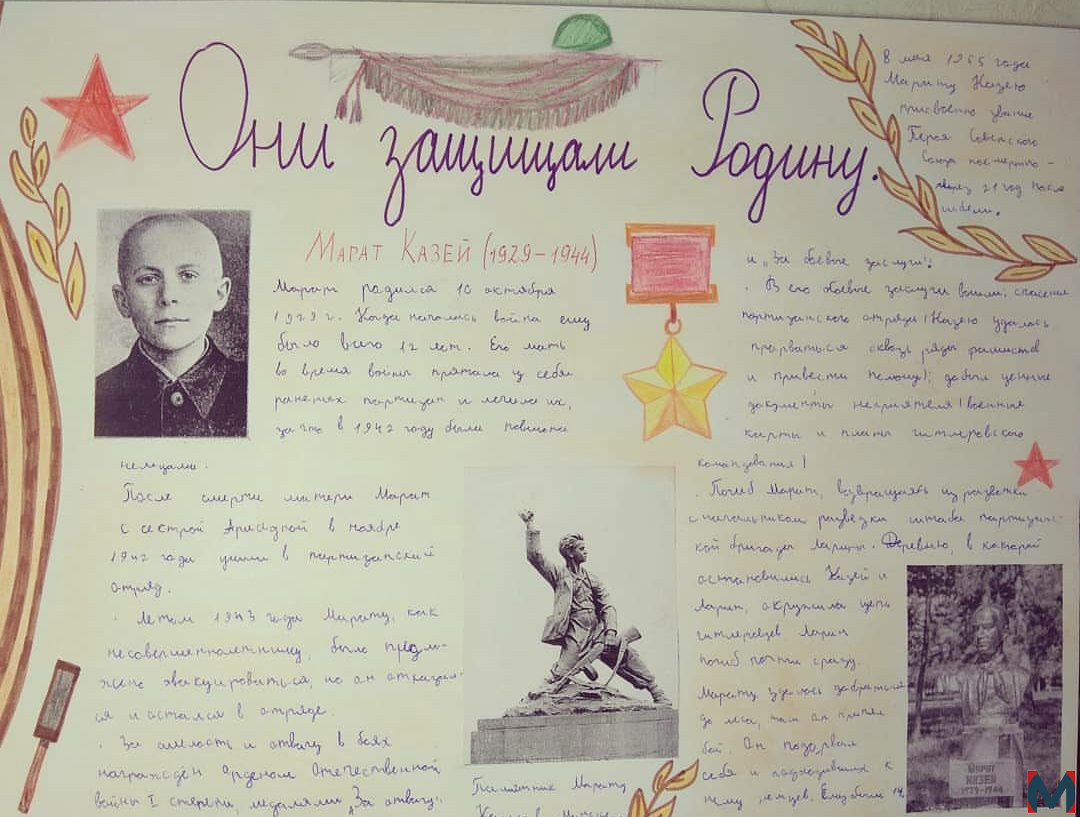 Они защищали Родину.
Марат Казей (1929–1944)
Марат родился 10 октября
1929 г. Когда началась война ему
было всего 12 лет. Его мать
во время войны прятала у себя
раненых партизан и лечила их,
за что в 1942 году была повешена
немцами.
После смерти матери Марат
с сестрой Ариадной в ноябре
1942 года ушли в партизанский
отряд.
. Летом 1943 года Марату, как
несовершеннолетнему, было предло-
жено эвакуироваться, но он отказал-
ся и остался в отряде.
. За смелость и отвагу в боях
награждён Орденом Отечественной
войны I степени, медалями „За отвагу"
и „За боевые заслуги".
. В его боевые заслуги вошли: спасение
партизанского отряда (Казею удалось
прорваться сквозь ряды фашистов
и привести помощь); добыл ценные
документы неприятеля (военные
карты и планы гитлеровского
командования)
. Погиб Марат, возвращаясь из разведки
с начальником разведки штаба партизанс-
кой бригады Ларины. Деревню, в которой
остановились Казей и
Ларин, окружила цепь
гитлеровцев. Ларин
погиб почти сразу.
Марату удалось добраться
до леса, там он принял
бой. Он подорвал
себя и подходивших к
нему немцев. Ему было 14
8 мая 1965 года
Марату Казею
присвоено звание
Героя Советского
Союза посмертно –
через 21 год после
гибели.
Памятник Марату
МАРАТ
КАЗЕЙ
1929-1944
M